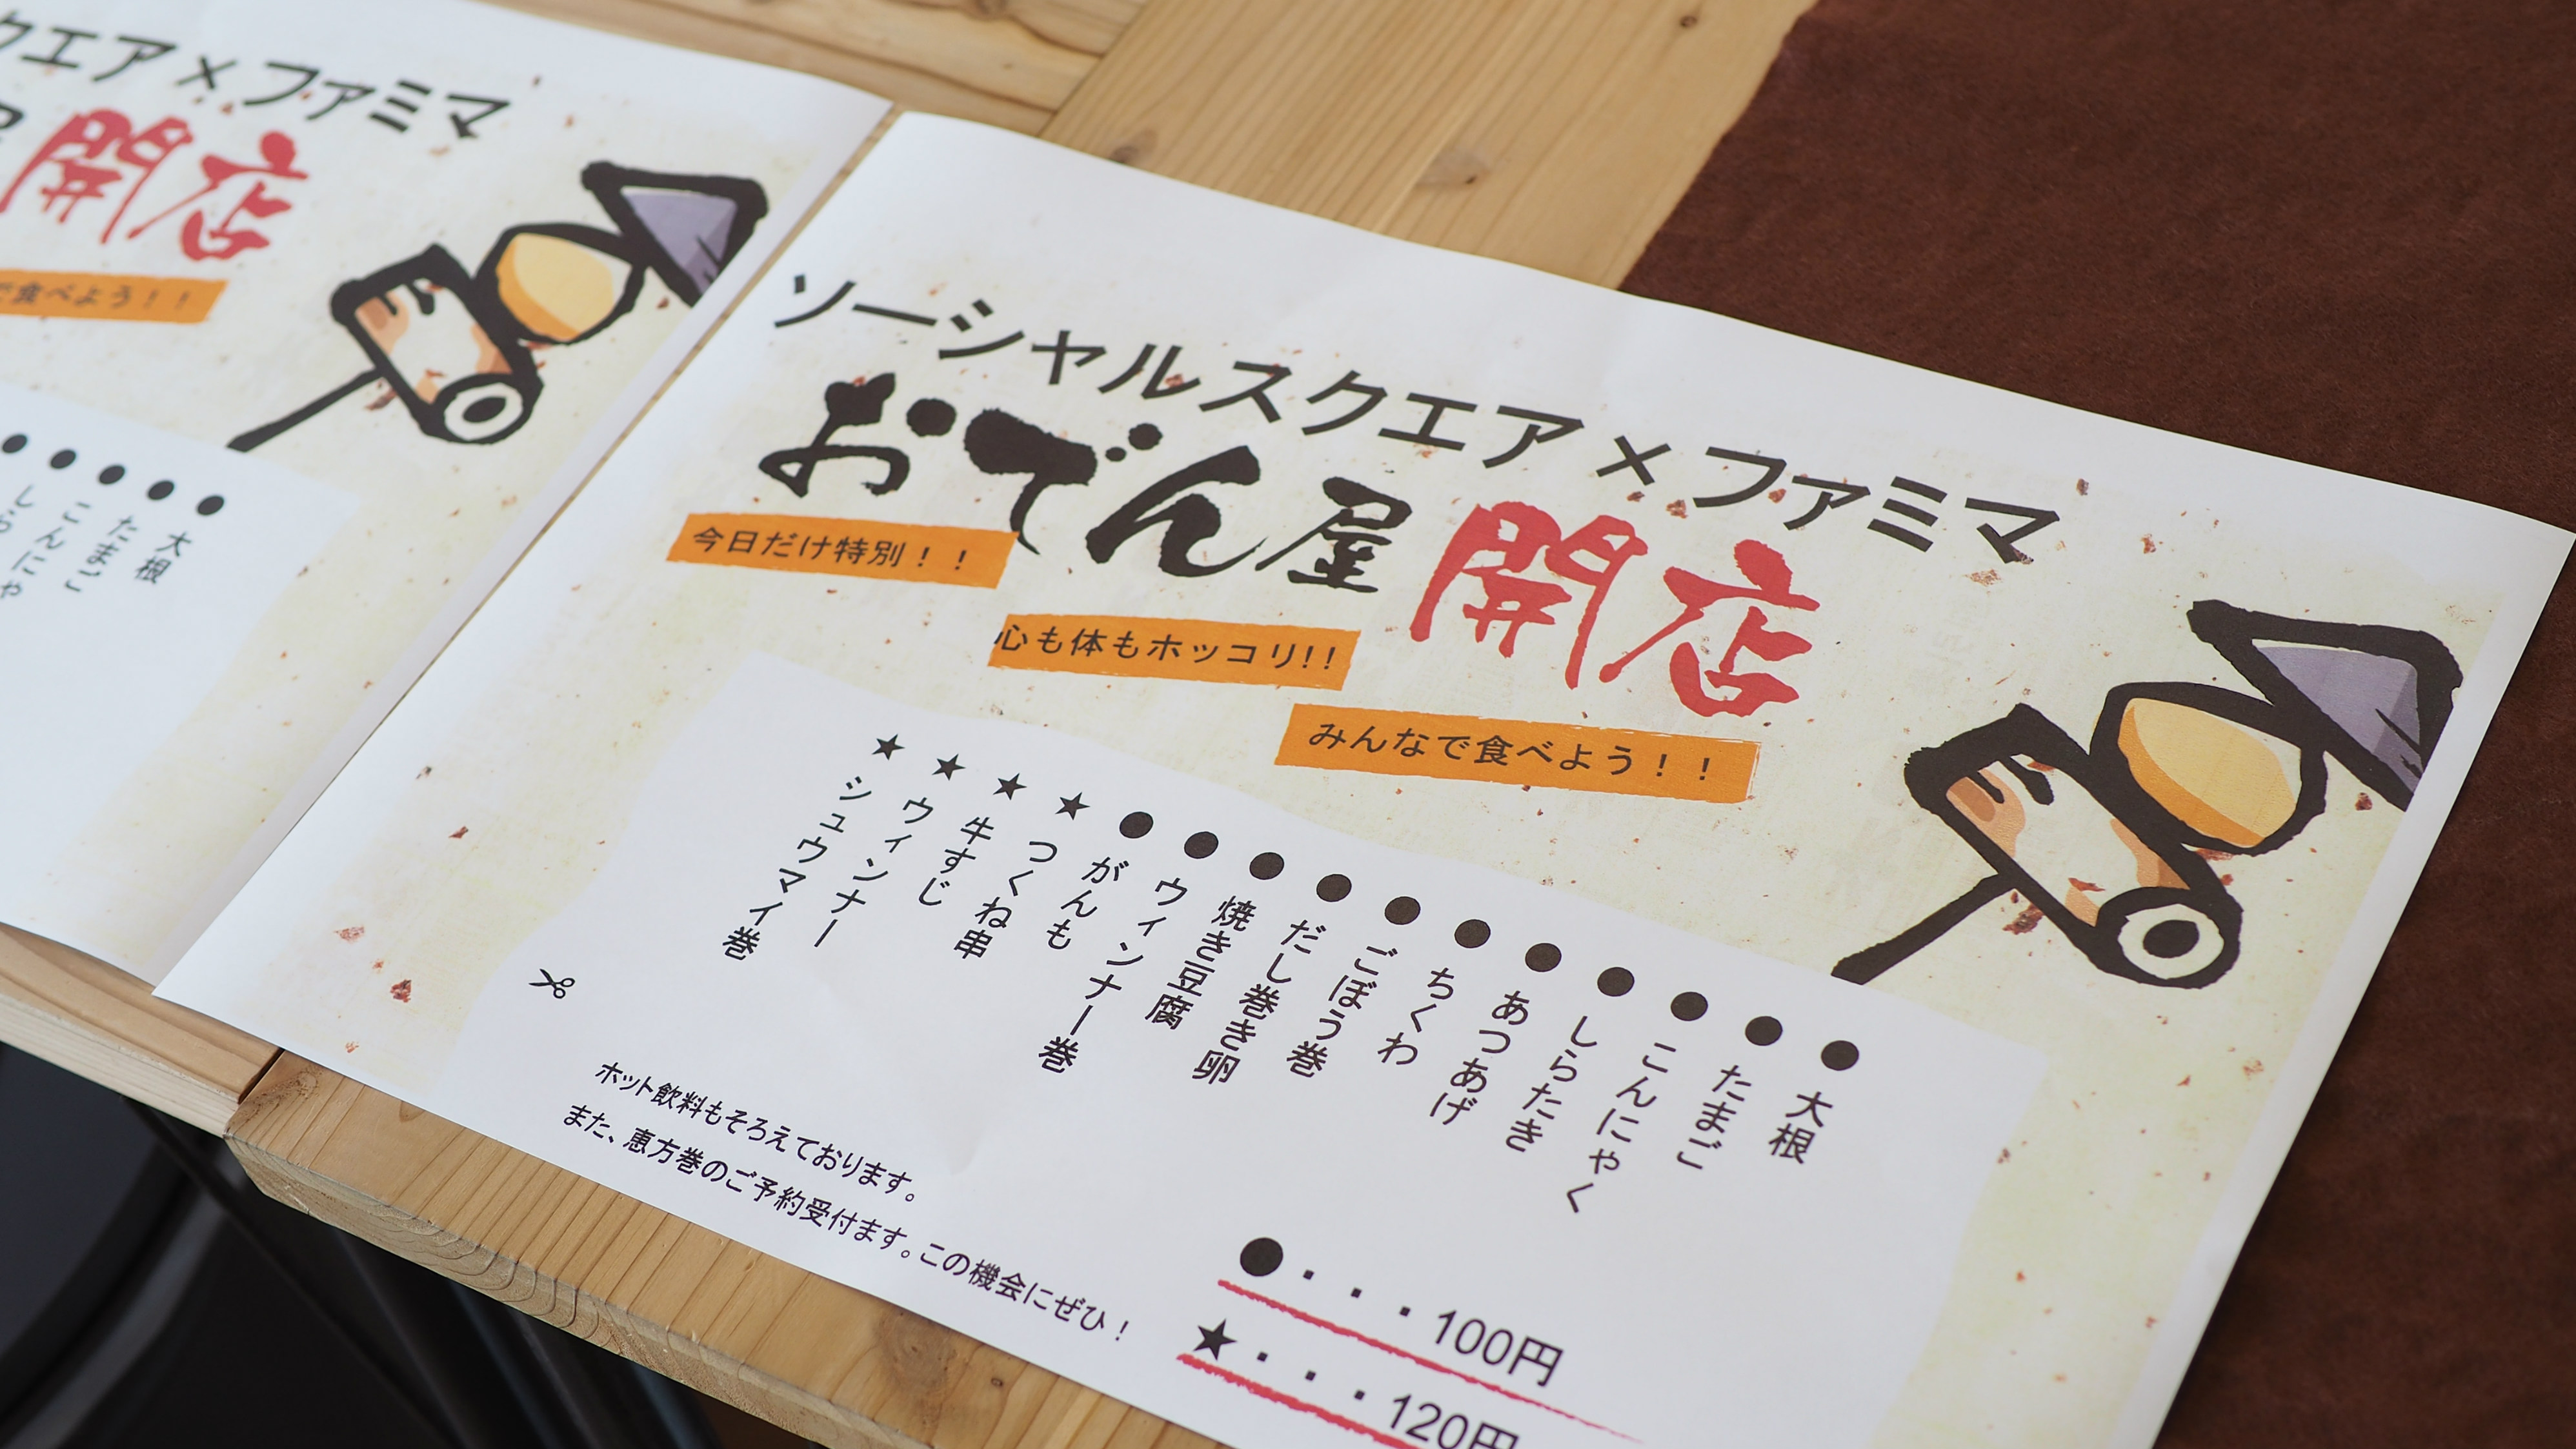 クエア×ファミマ
開店
で食べよう！！
●大根
●たまご
●こんにゃ
●しら
ソーシャルスクエア×ファミマ
おでん屋開店
今日だけ特別！！
心も体もホッコリ!!
みんなで食べよう！！
●大根
●たまご
●こんにゃく
●しらたき
●あつあげ
●ちくわ
●ごぼう巻
●だし巻き卵
●焼き豆腐
●ウィンナー巻
●がんも
★つくね串
★牛すじ
★ウィンナー
★シュウマイ巻
●・・・100円
★・・・120円
ホット飲料もそろえております。
また、恵方巻のご予約受付ます。この機会にぜひ！